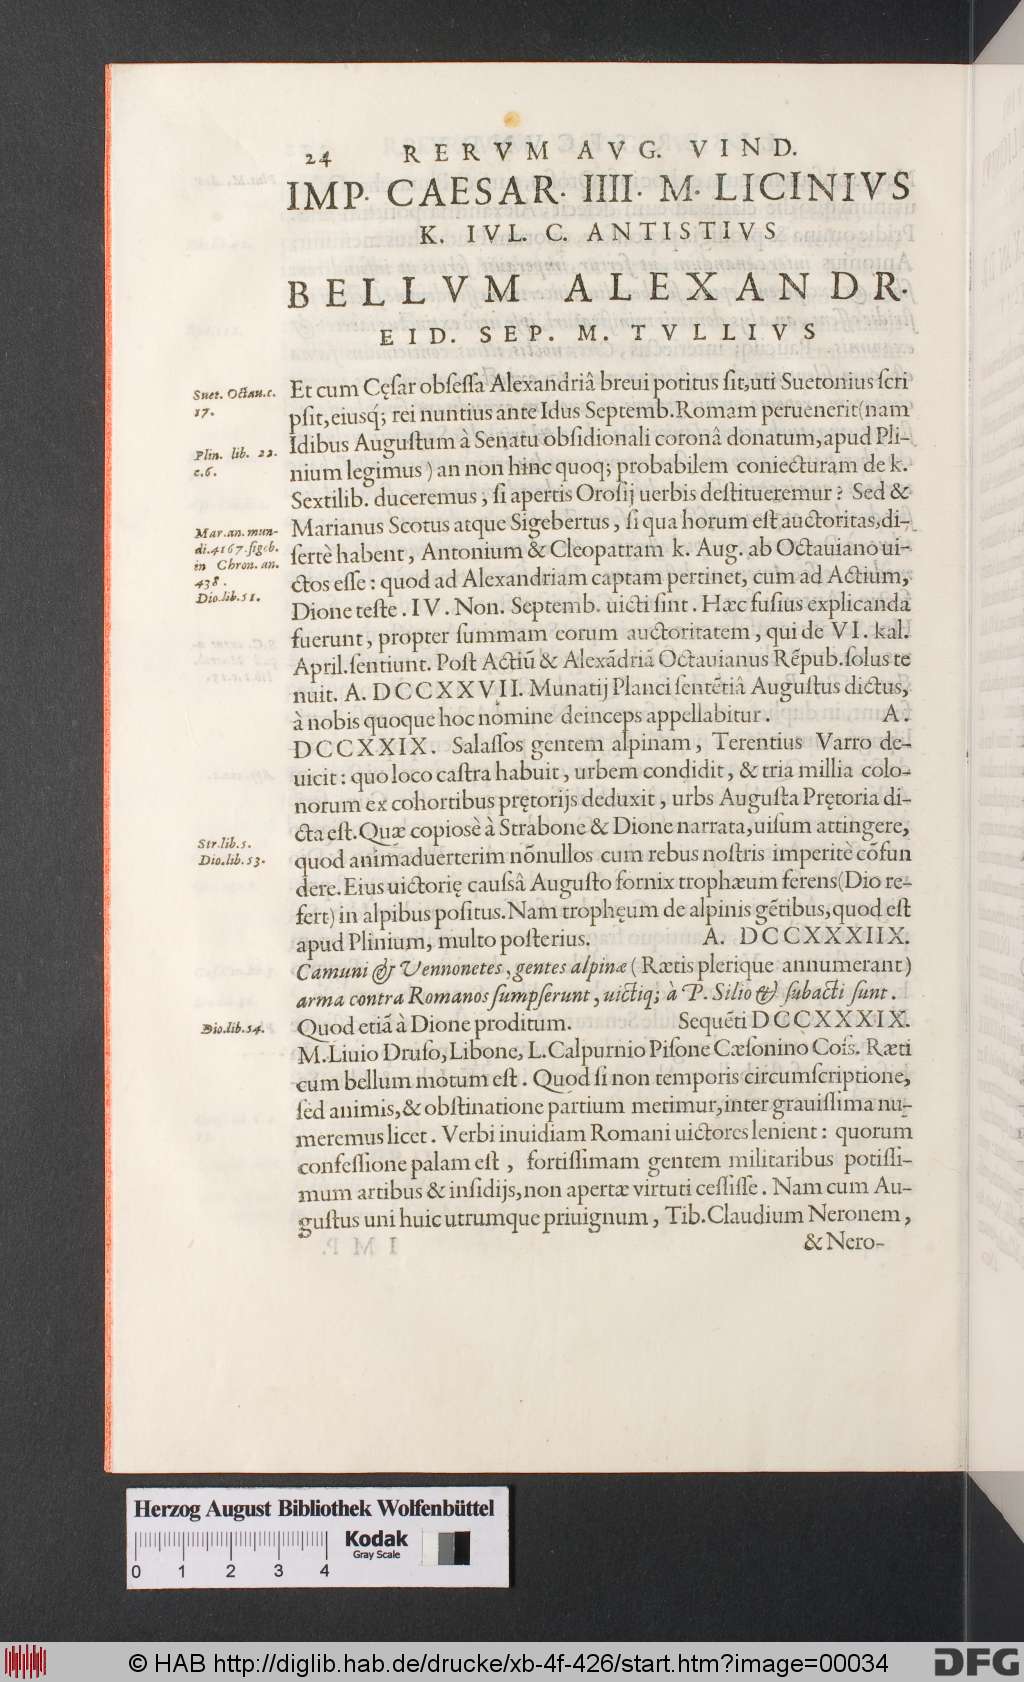 24 RERVM AVG. VIND.
IMP. CAESAR. IIII. M. LICINIVS
K. IVL. C. ANTISTIVS
BELLVM ALEXANDR.
EID. SEP. M. TVLLIVS
Suet. Octau.c.
17.
Plin. lib. 22.
c.6.
Mar.an.mun-
di.4167.sigeb.
in Chron. an.
438.
Dio.lib.51.
Et cum Cęſar obſeſſa Alexandriâ breui potitus ſit,uti Suetonius ſcri
pſit,eiusq́; rei nuntius ante Idus Septemb.Romam peruenerit(nam
Idibus Auguſtum à Senatu obſidionali coronâ donatum,apud Pli-
nium legimus) an non hinc quoq; probabilem coniecturam de k.
Sextilib. duceremus, ſi apertis Oroſij uerbis deſtitueremur? Sed &
Marianus Scotus atque Sigebertus, ſi qua horum eſt auctoritas,di-
ſertè habent, Antonium & Cleopatram k. Aug. ab Octauiano ui-
ctos eſſe: quod ad Alexandriam captam pertinet, cum ad Actium,
Dione teſte. IV. Non. Septemb. uicti ſint. Hæc fuſius explicanda
fuerunt, propter ſummam eorum auctoritatem, qui de VI. kal.
April.ſentiunt. Poſt Actiū & Alexādriā Octauianus Rēpub.ſolus te
nuit. A. DCCXXVII. Munatij Planci ſentētiâ Auguſtus dictus,
à nobis quoque hoc nomine deinceps appellabitur. A.
DCCXXIX. Salaſſos gentem alpinam, Terentius Varro de-
uicit: quo loco caſtra habuit, urbem condidit, & tria millia colo-
norum ex cohortibus prętorijs deduxit, urbs Auguſta Prętoria di-
cta eſt. Quæ copiosè à Strabone & Dione narrata,uiſum attingere,
quod animaduerterim nōnullos cum rebus noſtris imperitè cōfun
dere. Eius uictorię cauſâ Auguſto fornix trophæum ferens(Dio re-
fert) in alpibus poſitus. Nam tropheum de alpinis gētibus,quod eſt
apud Plinium, multo poſterius. A. DCCXXXIIX.
Str.lib.5.
Dio.lib.53.
Camuni & Vennonetes, gentes alpinæ (Rætis plerique annumerant)
arma contra Romanos ſumpſerunt, uictiq; à P. Silio & ſubacti ſunt.
Quod etiā à Dione proditum. Sequēti DCCXXXIX.
Dio.lib.54.
M. Liuio Druſo, Libone, L. Calpurnio Piſone Cæſonino Coſs. Ræti
cum bellum motum eſt. Quod ſi non temporis circumſcriptione,
ſed animis,& obſtinatione partium metimur,inter grauiſſima nu-
meremus licet. Verbi inuidiam Romani uictores lenient: quorum
confeſſione palam eſt, fortiſſimam gentem militaribus potiſſi-
mum artibus & inſidijs,non apertæ virtuti ceſſiſſe. Nam cum Au-
guſtus uni huic utrumque priuignum, Tib. Claudium Neronem,
& Nero-
Herzog August Bibliothek Wolfenbüttel
Kodak
Gray Scale
0 1 2 3 4
© HAB http://diglib.hab.de/drucke/xb-4f-426/start.htm?image=00034
DFG